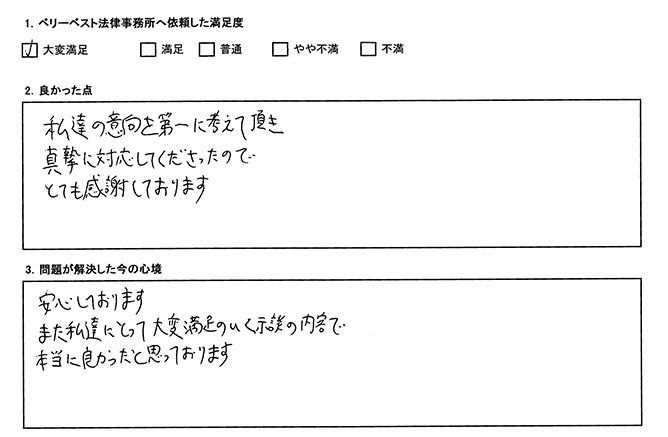 1. ベリーベスト法律事務所へ依頼した満足度
☑ 大変満足 □ 満足 □ 普通 □ やや不満 □ 不満
2. 良かった点
私達の意向を第一に考えて頂き
真摯に対応してくださったので
とても感謝しております
3. 問題が解決した今の心境
安心しております
また私達にとって大変満足のいく示談の内容で
本当に良かったと思っております